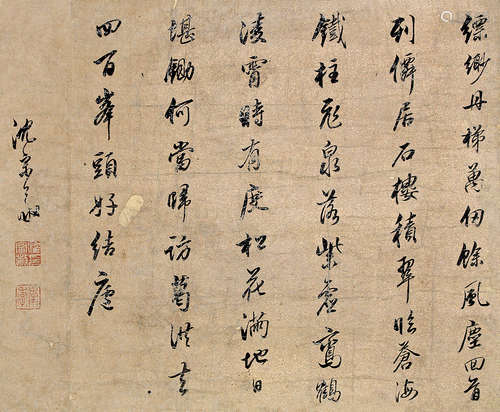 縹緲丹梯萬仞餘風塵回首
列僊居石樓積翠臨蒼海
鐵柱飛泉落紫虛鸞鶴
凌霄時有度松花滿地日
堪鋤何當歸訪葛洪去
四百峯頭好結廬
沈宗敬